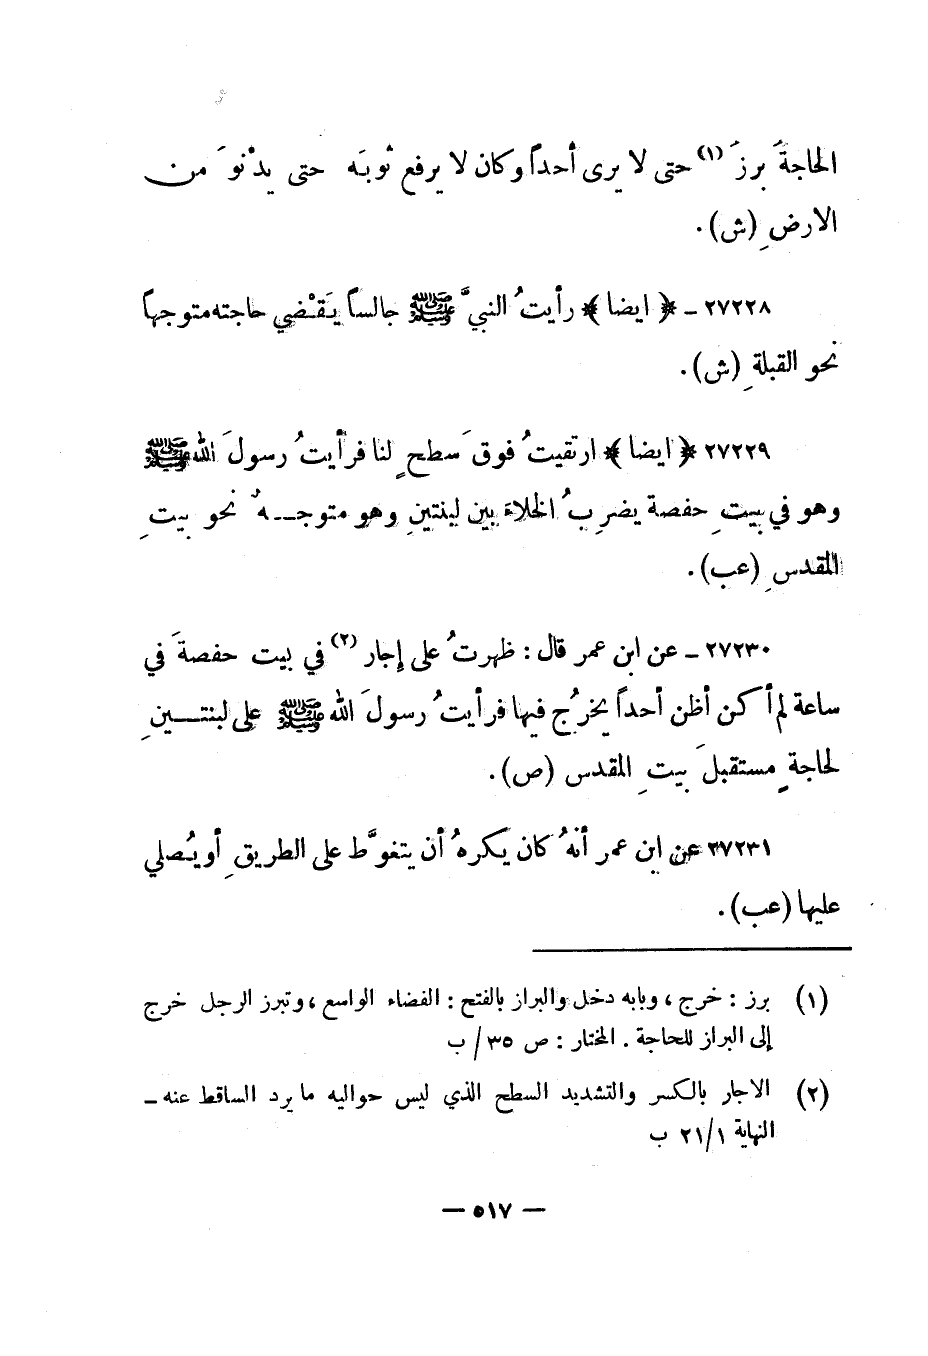 الحاجةَ برزَ (١) حتى لا يرى أحداً وكان لا يرفع ثوبَه حتى يدْنوَ من
الارضِ (ش).
٢٧٢٢٨ ـ ﴿ ايضا ﴾ رأيتُ النبيَّ ﷺ جالساً يَقْضي حاجته متوجهاً
نحو القبلةِ (ش).
٢٧٢٢٩ ﴿ ايضا ﴾ ارتقيتُ فوقَ سطحٍ لنا فرأيتُ رسولَ الله ﷺ
وهو في بيتِ حفصة يضربُ الخلاءَ بين لبنتينِ وهو متوجـهٌ نحو بيتِ
المقدسِ (عب).
٢٧٢٣٠ ـ عن ابن عمر قال : ظهرتُ على إجار (٢) في بيت حفصةَ في
ساعة لم أكن أظن أحداً يخرُج فيها فرأيتُ رسولَ الله ﷺ على لبنتـــينِ
لحاجةٍ مستقبلَ بيتِ المقدس (ص).
٢٧٢٣١ عن ابن عمر أنهُ كان يكرهُ أن يتغوَّط على الطريقِ أو يُصلي
عليها (عب).
(١) برز : خرج ، وبابه دخل والبراز بالفتح : الفضاء الواسع ، وتبرز الرجل خرج
إلى البراز للحاجة . المختار : ص ٣٥ / ب
(٢) الاجار بالكسر والتشديد السطح الذي ليس حواليه ما يرد الساقط عنه ـ
النهاية ٢١/١ ب
— ٥١٧ —